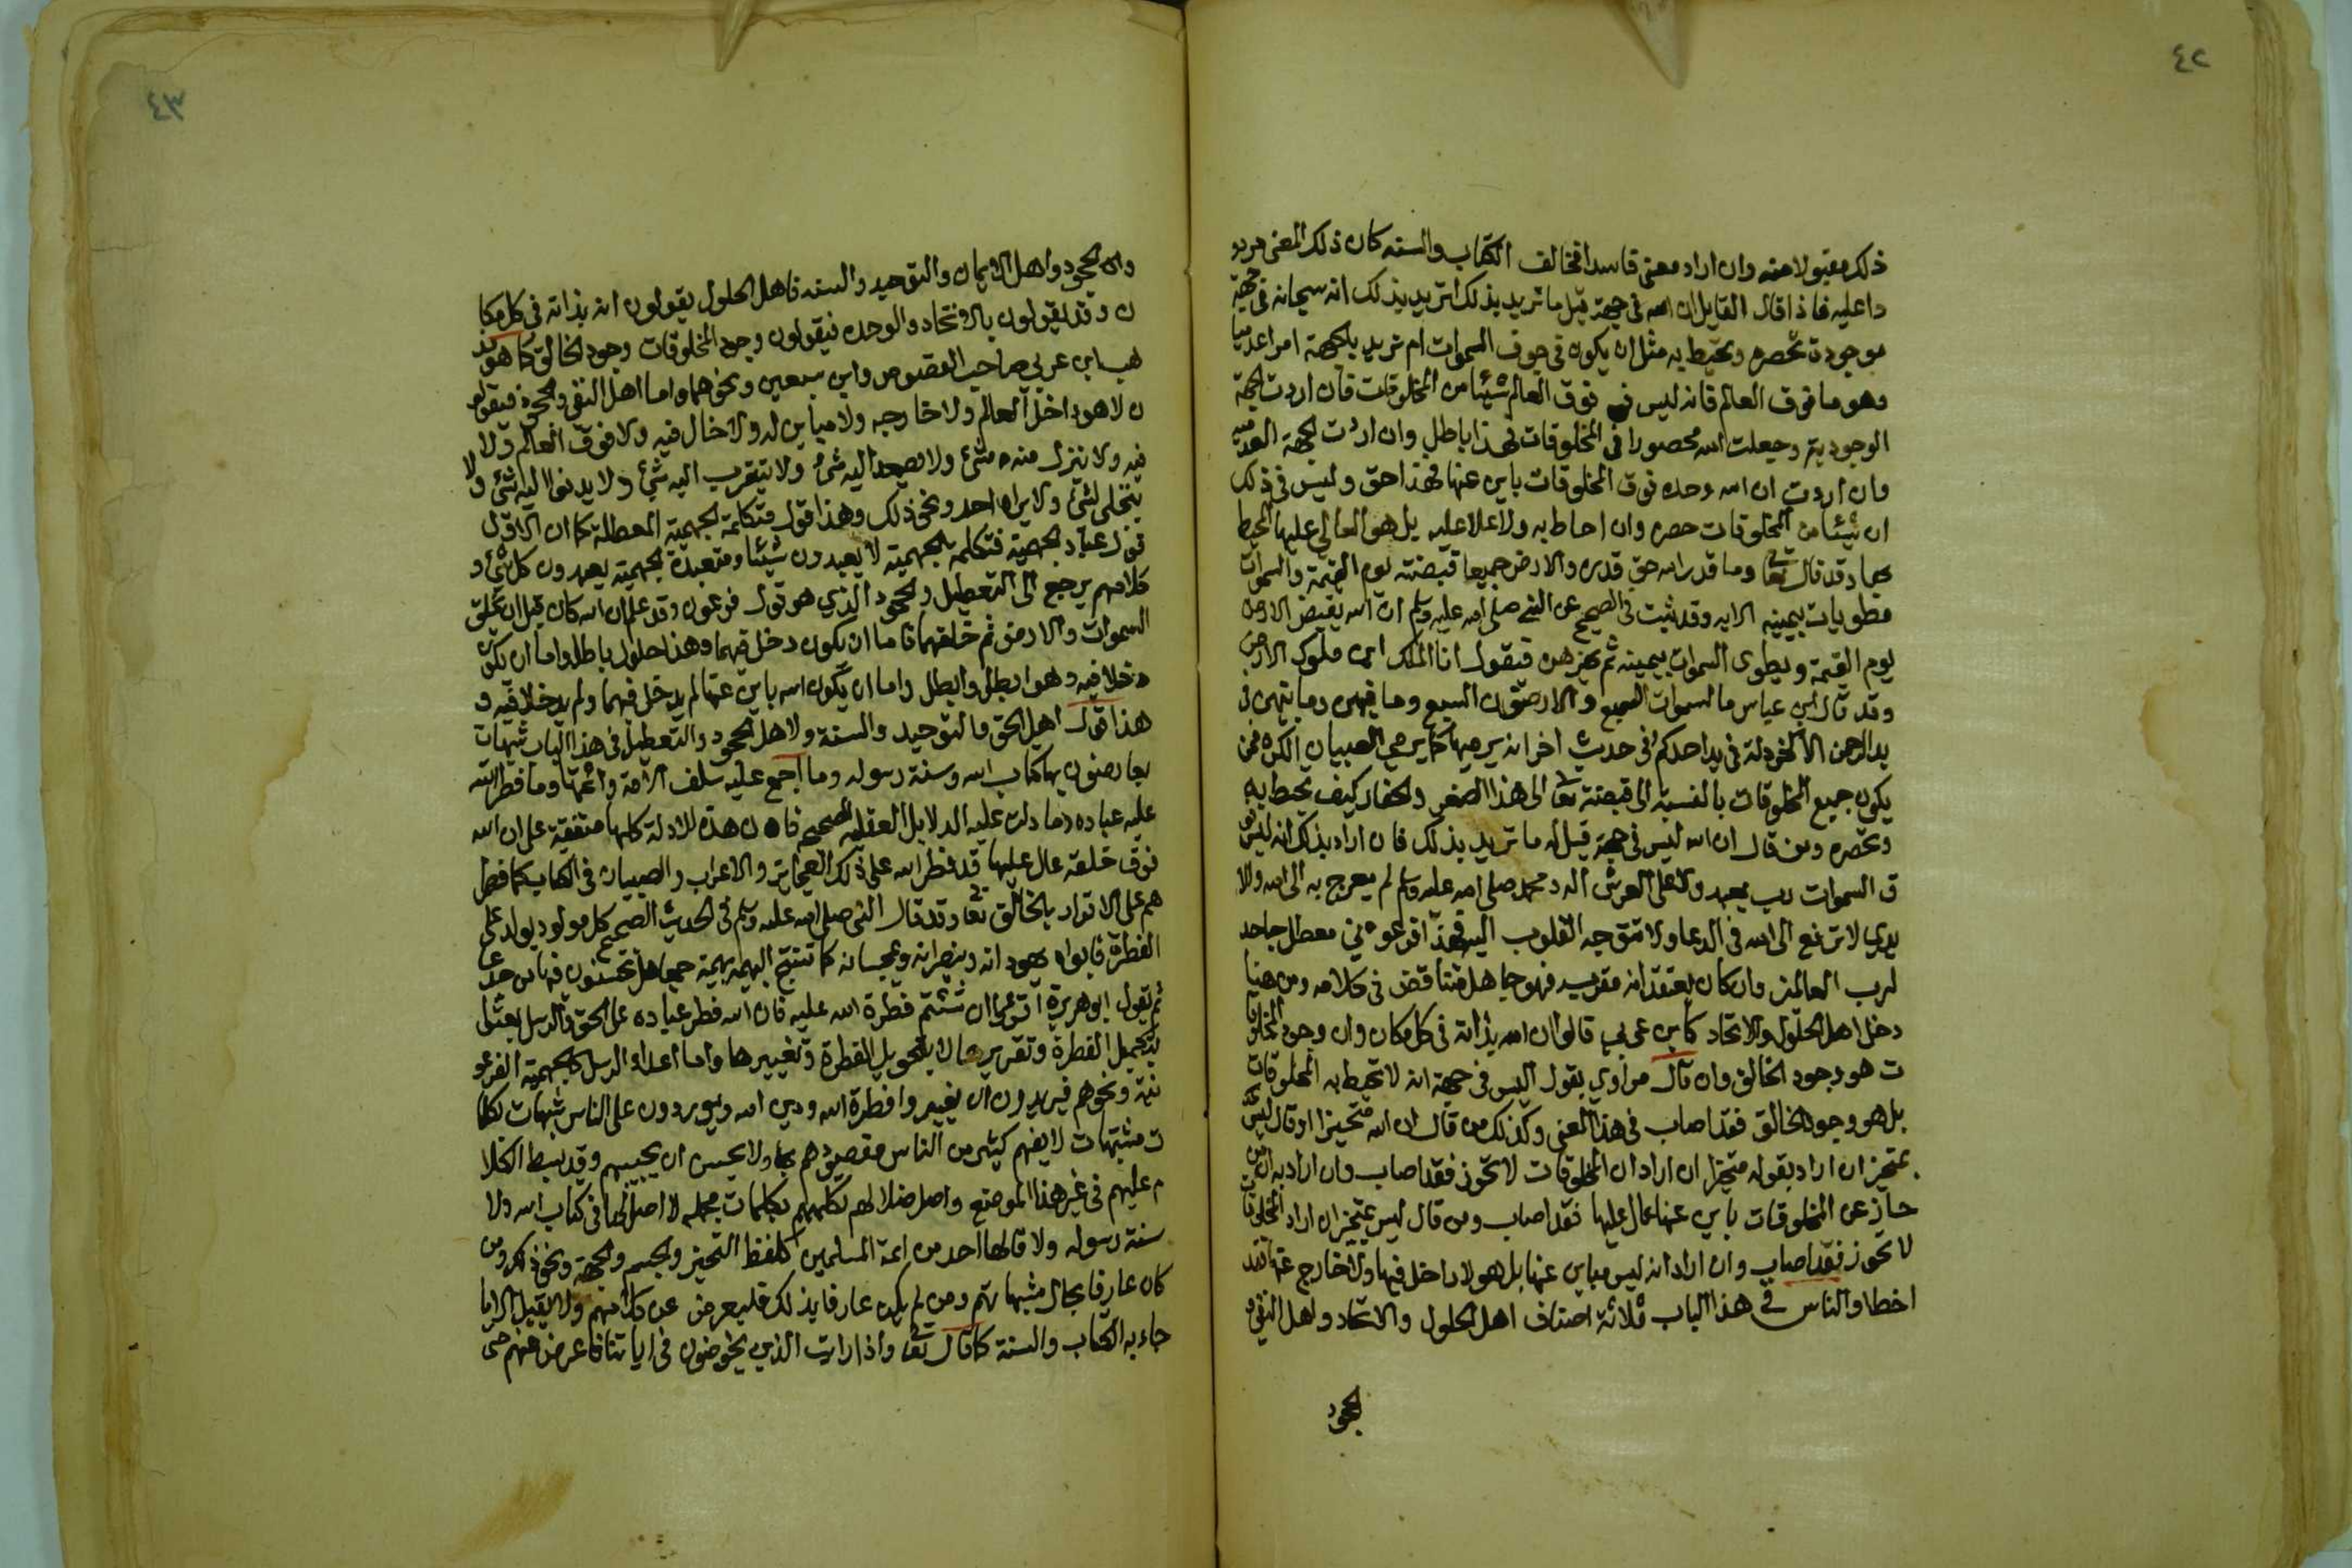 ٤٢
ذلك مقبولا منه وان اراد معنى فاسدا فخالف الكتاب والسنه كان ذلك المعنى مردو
دا عليه فاذا قال القايل ان الله في جهة قيل ما تريد بذلك اتريد بذلك انه سبحانه في جهة
موجودة تحصره وتحيط به مثل ان يكون في جوف السموات ام تريد بالجهة امرا عدميا
وهو ما فوق العالم فانه ليس فوق العالم شيئا من المخلوقات فان اردت الجهة
الوجودية وجعلت الله محصورا في المخلوقات فهذا باطل وان اردت الجهة العدميه
وان اردت ان الله وحده فوق المخلوقات باين عنها فهذا حق وليس في ذلك
ان شيئا من المخلوقات حصره وان احاط به ولا علا عليه بل هو العالي عليها المحيط
بها وقد قال تعا وما قدر الله حق قدره والارض جميعا قبضته يوم القيمة والسموات
مطويات بيمينه الايه وقد ثبت في الصحيح عن النبي صلى الله عليه وسلم ان الله يقبض الارض
يوم القيمة ويطوى السموات بيمينه ثم يهزهن فيقول انا الملك اين ملوك الارض
وقد قال ابن عباس ما السموات السبع والارضون السبع وما فيهن وما بينهن في
يد الرحمن الا كخردلة في يد احدكم وفي حديث اخر انه يرميها كما يرمي الصبيان الكره فمن
يكون جميع المخلوقات بالنسبة الى قبضته تعا الى هذا الصغر والحقار كيف تحيط به
وتحصره ومن قال ان الله ليس في جهة قيل له ما تريد بذلك فان اراد بذلك انه ليس فو
ق السموات رب يعبد ولا على العرش اله ومحمد صلى الله عليه وسلم لم يعرج به الى الله والا
يدي لا ترفع الى الله في الدعا ولا تتوجه القلوب اليه فهذا فرعوني معطل جاحد
لرب العالمين وان كان يعتقد انه مقر به فهو جاهل متناقض في كلامه ومن هنا
دخل اهل الحلول والاتحاد كابن عربي قالوا ان الله بذاته في كل مكان وان وجود المخلوقا
ت هو وجود الخالق وان قال مرادي بقول اليس في جهة انه لا تحيط به المخلوقات
بل هو وجود الخالق فقد اصاب في هذا المعنى وكذلك من قال ان الله متحيزا او قال ليس
بمتحيز ان اراد بقوله متحيزا ان اراد ان المخلوقات لا تحوز فقد اصاب وان اراد به ان
حاز عن المخلوقات باين عنها عال عليها فقد اصاب ومن قال ليس بمتحيز ان اراد المخلوقات
لا تحوز فقد اصاب وان اراد انه ليس مباين عنها بل هو لا داخل فيها ولا خارج عنها فقد
اخطا والناس في هذا الباب ثلاثة اصناف اهل الحلول والاتحاد واهل النفي و
الجحود
٤٣
والجحود واهل الايمان والتوحيد والسنه فاهل الحلول يقولون انه بذاته في كل مكا
ن وقد يقولون بالاتحاد والوحده فيقولون وجود المخلوقات وجود الخالق كما هو مذ
هب ابن عربي صاحب الفصوص وابن سبعين ونحوهما واما اهل النفي والجحود فيقولو
ن لا هو داخل العالم ولا خارجه ولا مباين له ولا حال فيه ولا فوق العالم ولا
فيه ولا ينزل منه شئ ولا يصعد اليه شئ ولا يتقرب اليه شئ ولا يدنوا اليه شئ ولا
يتجلى لشئ ولا يراه احد ونحو ذلك وهذا قول متكلمة الجهمية المعطلة كما ان الاول
قول عباد الجهمية فتكلمة الجهمية لا يعبدون شيئا ومتعبدة الجهمية يعبدون كل شئ و
كلامهم يرجع الى التعطيل والجحود الذي هو قول فرعون وقد علم ان الله كان قبل ان يخلق
السموات والارض ثم خلقهما فاما ان يكون دخل فيهما وهذا حلول باطل واما ان يكون
دخلا فيه وهو ابطل وابطل واما ان يكون الله باين عنها لم يدخل فيهما ولم يدخلا فيه و
هذا قول اهل الحق والتوحيد والسنة ولاهل الجحود والتعطيل في هذا الباب شبهات
يعارضون بها كتاب الله وسنة رسوله وما اجمع عليه سلف الامة وائمتها وما فطر الله
عليه عباده وما دلت عليه الدلايل العقليه الصحيحه فان هذه الادلة كلها متفقة على ان الله
فوق خلقه عال عليها قد فطر الله على ذلك العجايز والاعراب والصبيان في الكتاب كما فطر
هم على الاقرار بالخالق تعا وقد قال النبي صلى الله عليه وسلم في الحديث الصحيح كل مولود يولد على
الفطرة فابواه يهودانه وينصرانه ويمجسانه كما تنتج البهيمه بهيمة جمعا هل تحسون فيها من جدعا
ثم يقول ابو هريرة اقرؤا ان شئتم فطرة الله عليه فان الله فطر عباده على الحق والرسل بعثوا
بتكميل الفطرة وتقريرها لا بتحويل الفطرة وتغييرها واما اعداء الرسل كالجهمية الفرعو
نية ونحوهم فيريدون ان يغيروا فطرة الله ودين الله ويوردون على الناس شبهات لكلما
ت مشتبهات لا يفهم كثير من الناس مقصودهم بها ولا يحسن ان يجيبهم وقد بسط الكلا
م عليهم في غير هذا الموضع واصل ضلالهم تكلمهم بكلمات مجمله لا اصل لها في كتاب الله ولا
سنة رسوله ولا قالها احد من ائمة المسلمين كلفظ التحيز والجسم والجهة ونحو ذلك ومن
كان عارفا بحال شبهاتهم ومن لم يكن عارفا بذلك فليعرض عن كلامهم ولا يقبل الا ما
جاء به الكتاب والسنة كما قال تعا واذا رايت الذين يخوضون في اياتنا فاعرض عنهم حتى